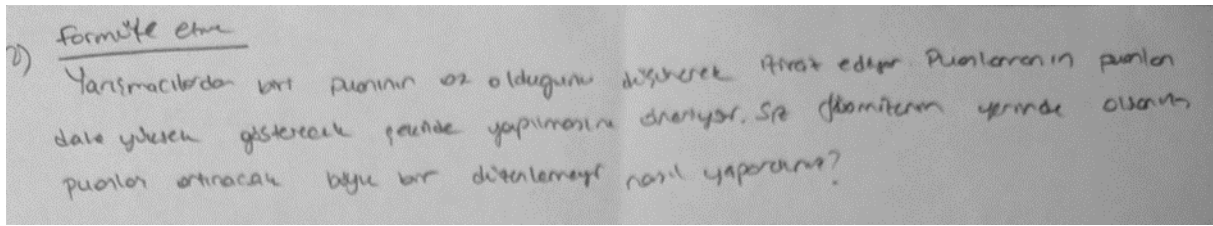 2) Formüle etme
Yarışmacılardan biri puanının az olduğunu düşünerek itiraz ediyor. Puanlamanın puanları
daha yüksek gösterecek şekilde yapılmasını öneriyor. Siz komitenin yerinde olsanız
puanları artıracak böyle bir düzenlemeyi nasıl yapardınız?